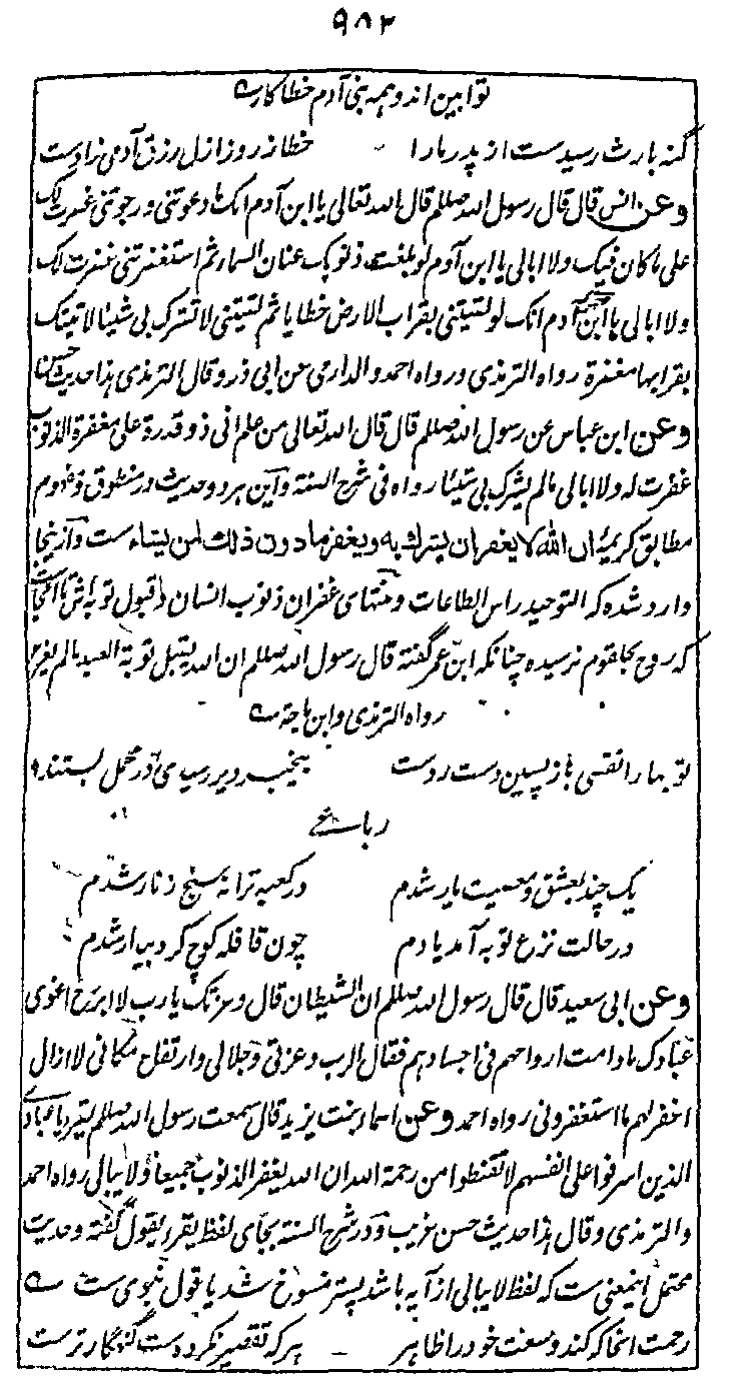 ۹۸۲
توابین اند و همه بنی آدم خطا کار
گنه بارث رسیدست از پدر مارا خطا ز روز ازل رزق آدمی زادست
وعن انس قال قال رسول الله صلعم قال الله تعالی یا ابن آدم انک ما دعوتنی و رجوتنی غفرت لک
علی ما کان فیک ولا ابالی یا ابن آدم لو بلغت ذنوبک عنان السماء ثم استغفرتنی غفرت لک
ولا ابالی یا ابن آدم انک لو لقیتنی بقراب الارض خطایا ثم لقیتنی لا تشرک بی شیئا لاتیتک
بقرابها مغفرة رواه الترمذی ورواه احمد والدارمی عن ابی ذر وقال الترمذی هذا حدیث حسن
وعن ابن عباس عن رسول الله صلعم قال قال الله تعالی من علم انی ذو قدرة علی مغفرة الذنوب
غفرت له ولا ابالی مالم یشرک بی شیئا رواه فی شرح السنة و این هر دو حدیث در منطوق و مفهوم
مطابق کریمهٔ ان الله لا یغفر ان یشرک به ویغفر ما دون ذلک لمن یشاء ست و از ینجا
وارد شده که التوحید راس الطاعات و منتهای غفران ذنوب انسان قبول توبه اش تا آنجاست
که روح بحلقوم نرسیده چنانکه ابن عمر گفته قال رسول الله صلعم ان الله یقبل توبة العبد مالم یغرغر
رواه الترمذی وابن ماجة
توبها را نفسی باز پسین دست ردست بیخبر دیر رسیدی در محمل بستند
رباعی
یک چند بعشق و معصیت یار شدم در کعبه ترانه سنج زنار شدم
در حالت نزع توبه آمد یادم چون قافله کوچ کرد بیدار شدم
وعن ابی سعید قال قال رسول الله صلعم ان الشیطان قال وعزتک یا رب لا ابرح اغوی
عبادک مادامت ارواحهم فی اجسادهم فقال الرب وعزتی وجلالی وارتفاع مکانی لا ازال
اغفر لهم ما استغفرونی رواه احمد وعن اسماء بنت یزید قال سمعت رسول الله صلعم یقرء یا عبادی
الذین اسرفوا علی انفسهم لا تقنطوا من رحمة الله ان الله یغفر الذنوب جمیعا ولا یبالی رواه احمد
والترمذی وقال هذا حدیث حسن غریب و در شرح السنة بجای لفظ یقرء یقول گفته و حدیث
محتمل اینمعنی ست که لفظ لا یبالی از آیه باشد پستر منسوخ شد یا قول نبوی ست
رحمت انجا که کند وسعت خود را ظاهر هر که تقصیر نکردست گنهگار ترست